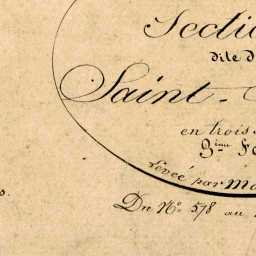 Section
dite d
Saint-
en trois
3ème Fe
Levée par M
Du N° 578 au
o.